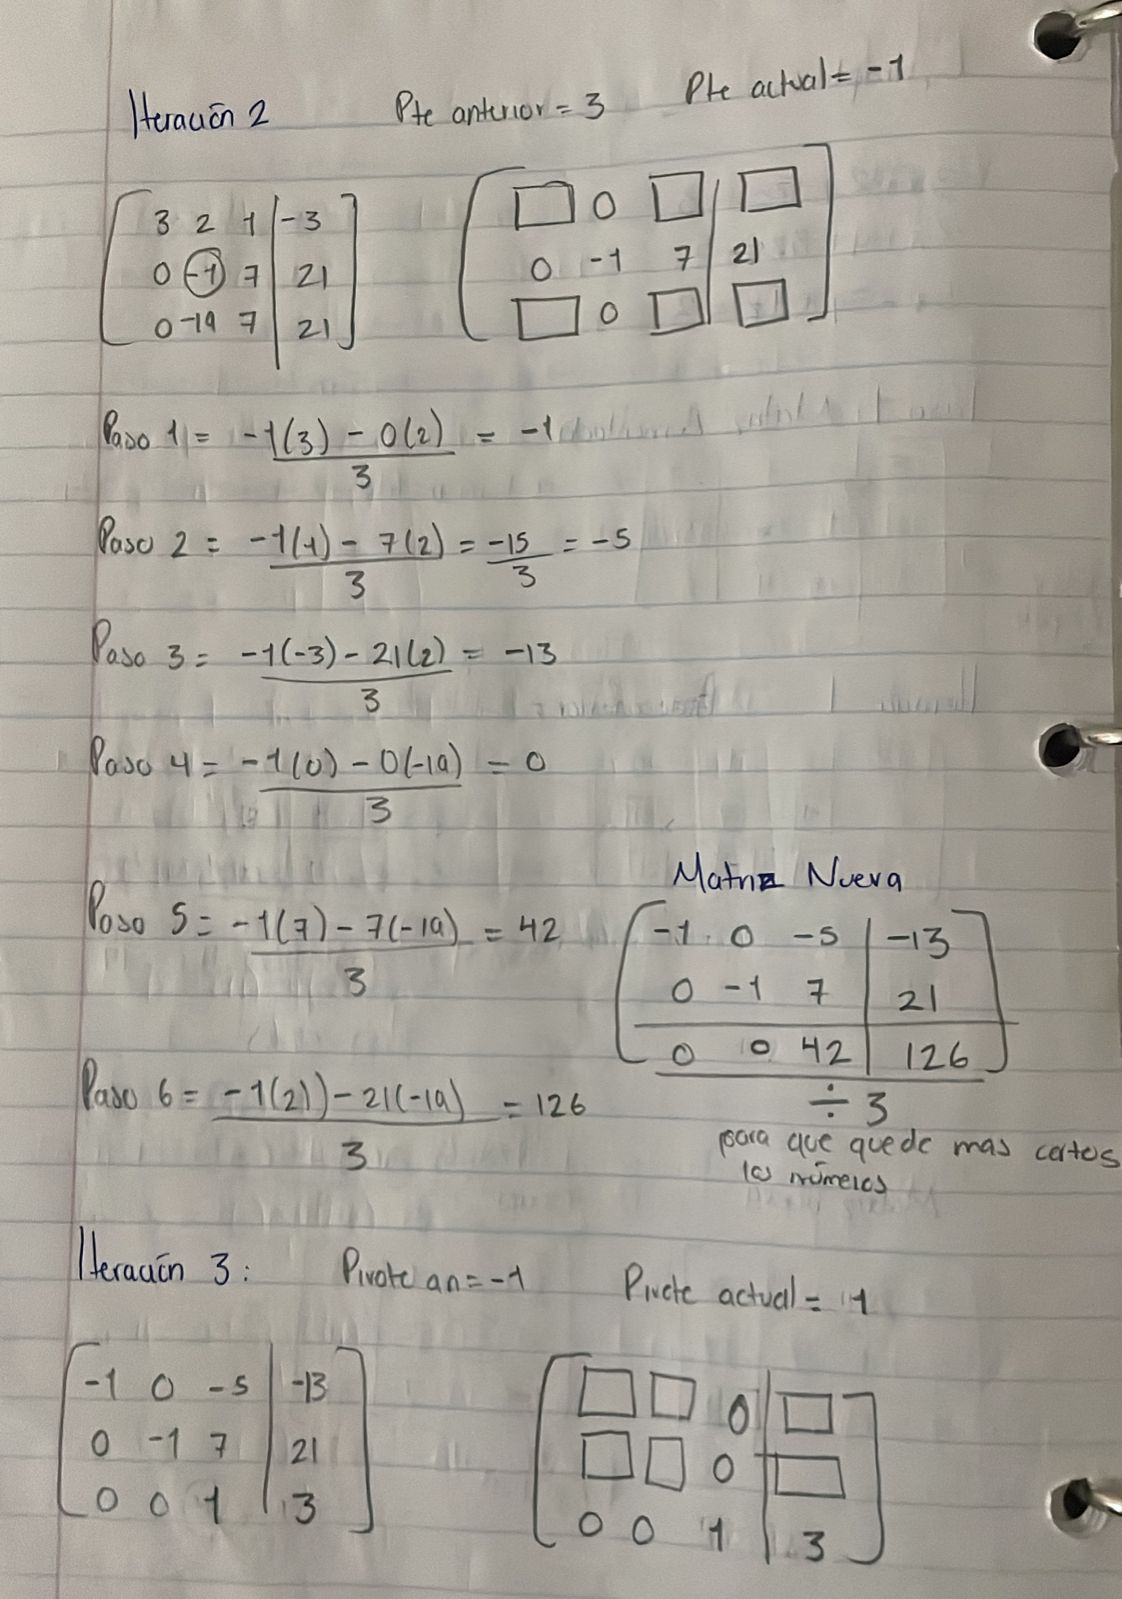 Iteración 2 Pte anterior = 3 Pte actual = -1
3 2 1 | -3
0 -1 7 | 21
0 -19 7 | 21
□ 0 □ | □
0 -1 7 | 21
□ 0 □ | □
Paso 1 = -1(3) - 0(2) / 3 = -1
Paso 2 = -1(1) - 7(2) / 3 = -15 / 3 = -5
Paso 3 = -1(-3) - 21(2) / 3 = -13
Paso 4 = -1(0) - 0(-19) / 3 = 0
Paso 5 = -1(7) - 7(-19) / 3 = 42
Paso 6 = -1(21) - 21(-19) / 3 = 126
Matriz Nueva
-1 0 -5 | -13
0 -1 7 | 21
0 0 42 | 126
÷ 3
para que quede mas cortos
los números
Iteración 3: Pivote an = -1 Pivote actual = 1
-1 0 -5 | -13
0 -1 7 | 21
0 0 1 | 3
□ □ 0 | □
□ □ 0 | □
0 0 1 | 3